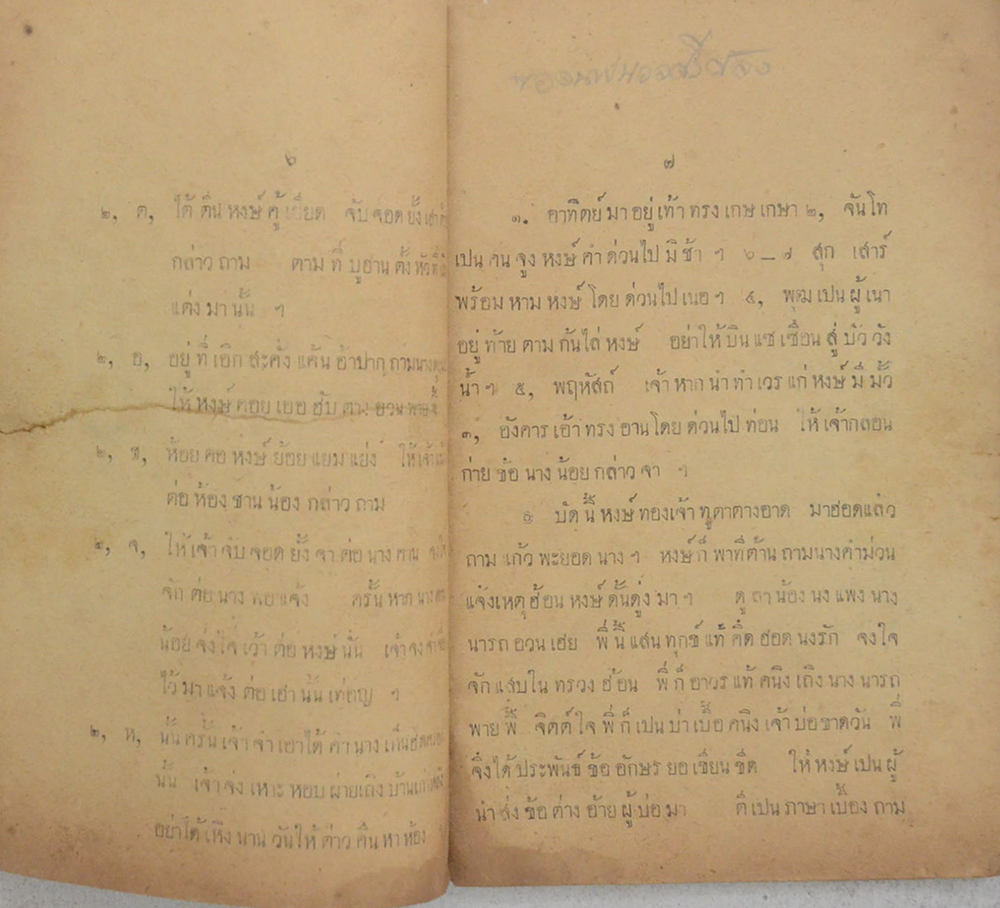 ๖
๒, ต, ใต้ ตีน หงษ์ คู้ เยียด จับ จอด ยั้ง
กล่าว ถาม ตาม ที่ บูฮาน ตั้ง หัว
แต่ง มา นั้น ฯ
๒, อ, อยู่ ที่ เอิก สะคัง แค้น อ้าปาก ถามนาง
ให้ หงษ์ คอย เยอ ฮับ ตาง อวน
๒, ข, ห้อย คอ หงษ์ ย้อย แยม แย่ง ให้เจ้า
ต่อ ห้อง ซาน น้อง กล่าว ถาม
๕, จ, ให้ เจ้า จับ จอด ยั้ง จา ต่อ นาง คาน
จัก ต่อ นาง พอ แจ้ง ครั้น หาก นาง
น้อย จ่ง ใจ เว้า ต่อ หงษ์ นั้น เจ้า จง
ไว้ มา แจ้ง ต่อ เฮา นั้น เทอญ ฯ
๒, ห, นั้น ครั้น เจ้า จำ เอา ได้ คำ นาง
นั้น เจ้า จ่ง เหาะ หอบ ผ่าย เถิง บ้าน
อย่า ได้ เหิง นาน วัน ให้ ต่าว คืน หา ห้อง
๗
๑. อาทิตย์ มา อยู่ เท้า ทรง เกษ เกษา ๒, จันโท
เปน คน จูง หงษ์ คำ ด่วนไป มิ ช้า ฯ ๖—๗ สุก เสาร์
พร้อม หาม หงษ์ โดย ด่วนไป เนอ ฯ ๔, พุฒ เปน ผู้ เนา
อยู่ ท้าย ตาม กันไล่ หงษ์ อย่าให้ บิน แซ เซื่อน สู่ บัว วัง
น้ำ ฯ ๕, พฤหัสถ์ เจ้า หาก นำ ทำ เวร แก่ หงษ์ มี มั้ว
๓, อังคาร เอ้า ทรง อานโดย ด่วนไป ท่อน ให้ เจ้ากลอน
ก่าย ข้อ นาง น้อย กล่าว จา ฯ
๏ บัด นี้ หงษ์ ทองเจ้า ทูตาตางอาด มาฮอดแล้ว
ถาม แก้ว พะยอด นาง ฯ หงษ์ ก็ พาที ต้าน ถามนางคำม่วน
แจ้งเหตุ ฮ้อน หงษ์ ดั้นดุ่ง มา ฯ ดู ลา น้อง นง แพง นาง
นารถ อวน เฮย พี่ นี้ แสน ทุกข์ แท้ คึด ฮอด นงรัก จงใจ
จัก แสบใน ทรวง ฮ้อน พี่ ก็ อาวร แท้ คนิง เถิง นาง นารถ
พาย พี้ จิตต์ ใจ พี่ ก็ เปน บ่า เบื้อ คนิง เจ้า บ่อ ขาดวัน พี่
จึ่งได้ ประพันธ์ ข้อ อักษร ยอ เขียน ขีด ให้ หงษ์ เปน ผู้
นำ ส่ง ข้อ ต่าง อ้าย ผู้ บ่อ มา คึ เปน ภาษา เบื้อง ถาม